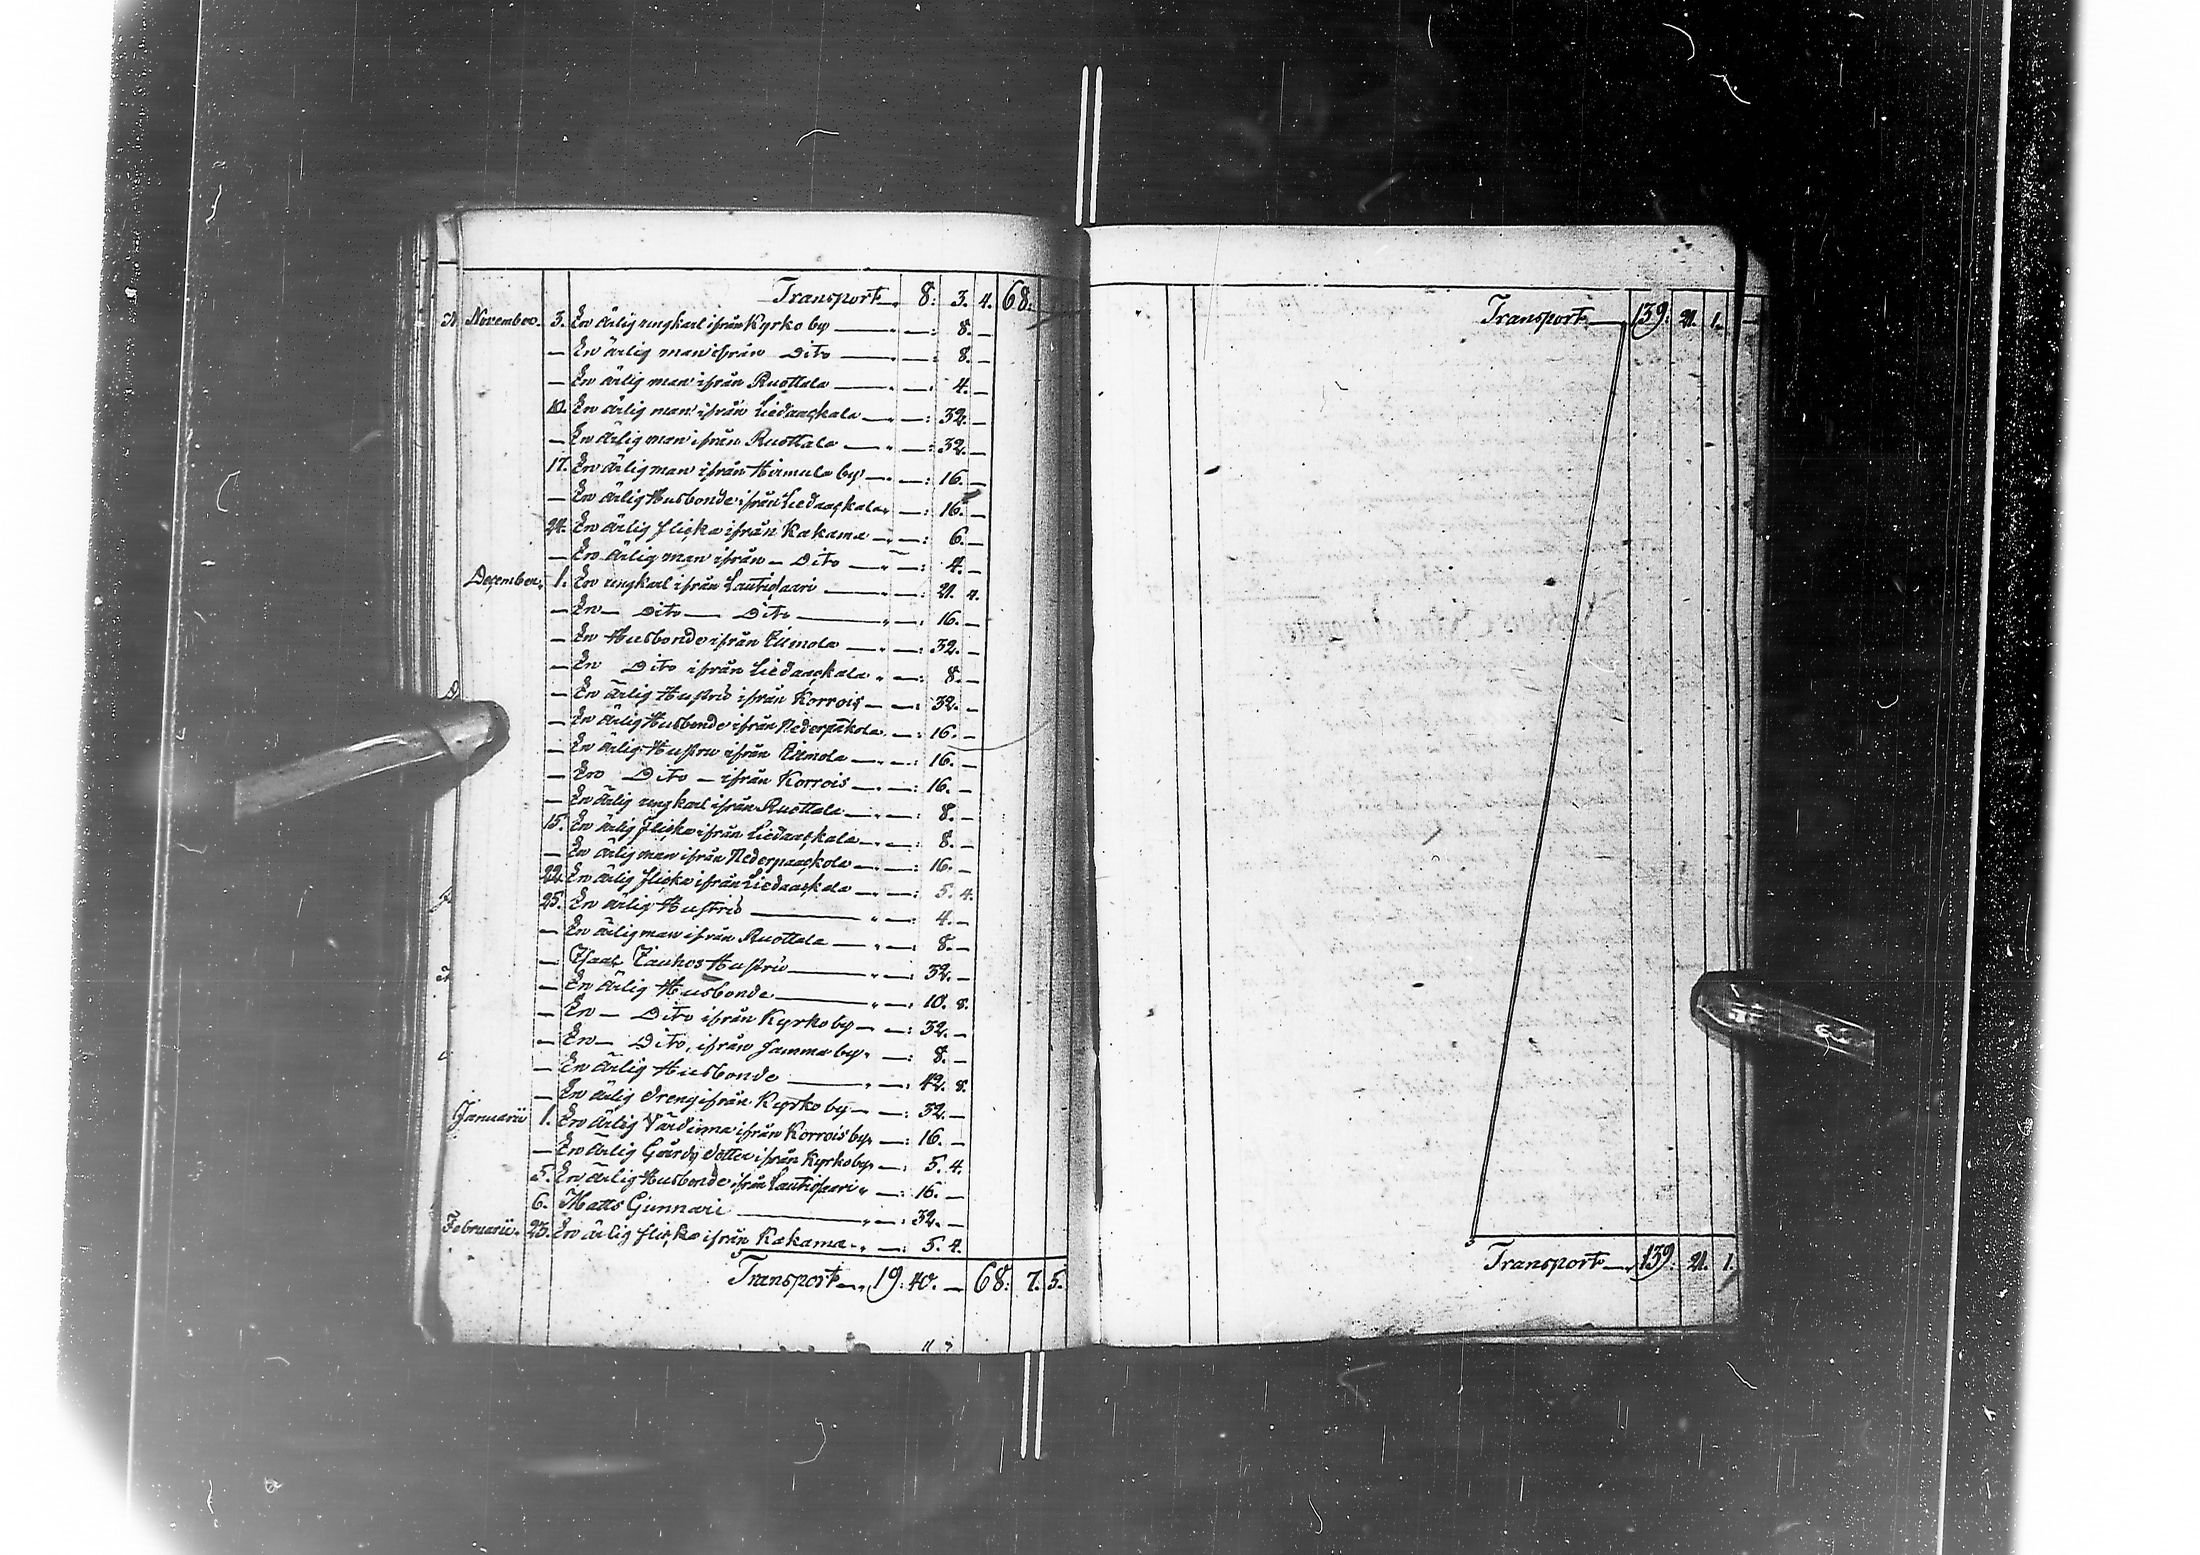 Transport 8. 3. 4. 68.
November. 3. En ärlig ungkarl ifrån Kyrko by — 8. —
— En ärlig man ifrån Dito — 8. —
— En ärlig man ifrån Ruottala — 4. —
10. En ärlig man ifrån Liedaackala — 32. —
— En ärlig man ifrån Ruottala — 32. —
17. En ärlig man ifrån Hirmula by — 16. —
— En ärlig Husbonde ifrån Liedaackala — 16. —
24. En ärlig flicka ifrån Kakama — 6. —
— En ärlig man ifrån — Dito — 4. —
December. 1. En ungkarl ifrån Lautiosaari — 21. 4.
— En — Dito — Dito — 16. —
— En Husbonde ifrån — 32. —
— En Dito ifrån Liedaackala — 8. —
— En ärlig Hustru ifrån Korrois — 32. —
— En ärlig Husbonde ifrån Nederpåkola — 16. —
— En ärlig Hustru ifrån — 16. —
— En Dito — ifrån Korrois — 16. —
— En ärlig ungkarl ifrån Ruottala — 8. —
15. En ärlig flicka ifrån Liedaackala — 8. —
— En ärlig man ifrån Nederpaackola — 16. —
22. En ärlig flicka ifrån Liedaackala — 5. 4.
25. En ärlig Hustru — 4. —
— En ärlig man ifrån Ruottala — 8. —
— Isaac Hustru — 32. —
— En ärlig Husbonde — 10. 8.
— En — Dito ifrån Kyrko by — 32. —
— En — Dito, ifrån samma by — 8. —
— En ärlig Husbonde — 42. 8.
— En ärlig dreng ifrån Kyrko by — 32. —
Januarii 1. En ärlig Värdinna ifrån Korrois by — 16. —
— En ärlig Gårds dotter ifrån Kyrkoby — 5. 4.
5. En ärlig Husbonde ifrån Lautiosaari — 16. —
6. Matts Gunnari — 32. —
Februarii. 23. En ärlig flicka ifrån Kakama — 5. 4.
Transport — 19. 40. — 68. 7. 5.
Transport — 139. 21. 1.
Transport — 139. 21. 1.